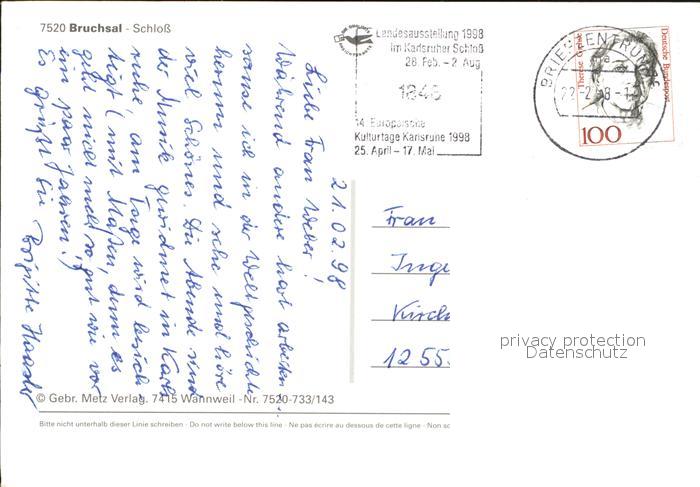 7520 Bruchsal - Schloß
Landesausstellung 1998
im Karlsruher Schloß
28. Feb. - 2. Aug
1848
14. Europäische
Kulturtage Karlsruhe 1998
25. April - 17. Mai
BRIEFZENTRUM
22-2.98-1
Therese Giehse
Deutsche Bundespost
100
21.02.98
Liebe Frau Weber!
Während andere hart arbeiten
rase ich in der Weltgeschichte
herum und sehe und höre
viel Schönes. Die Abende sind
der Musik gewidmet in Karls
ruhe, am Tage wird besich
tigt (mit Maßen, denn es
geht nicht mehr so gut wie vor
ein paar Jahren!)
Es grüßt Sie Brigitte
Frau
Inge
Kirch
1255.
privacy protection
Datenschutz
© Gebr. Metz Verlag. 7415 Wannweil - Nr. 7520-733/143
Bitte nicht unterhalb dieser Linie schreiben · Do not write below this line · Ne pas écrire au dessous de cette ligne · Non sc